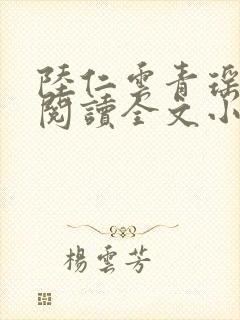 陸仁雲青瑶
閱讀全文小
楊雲芳